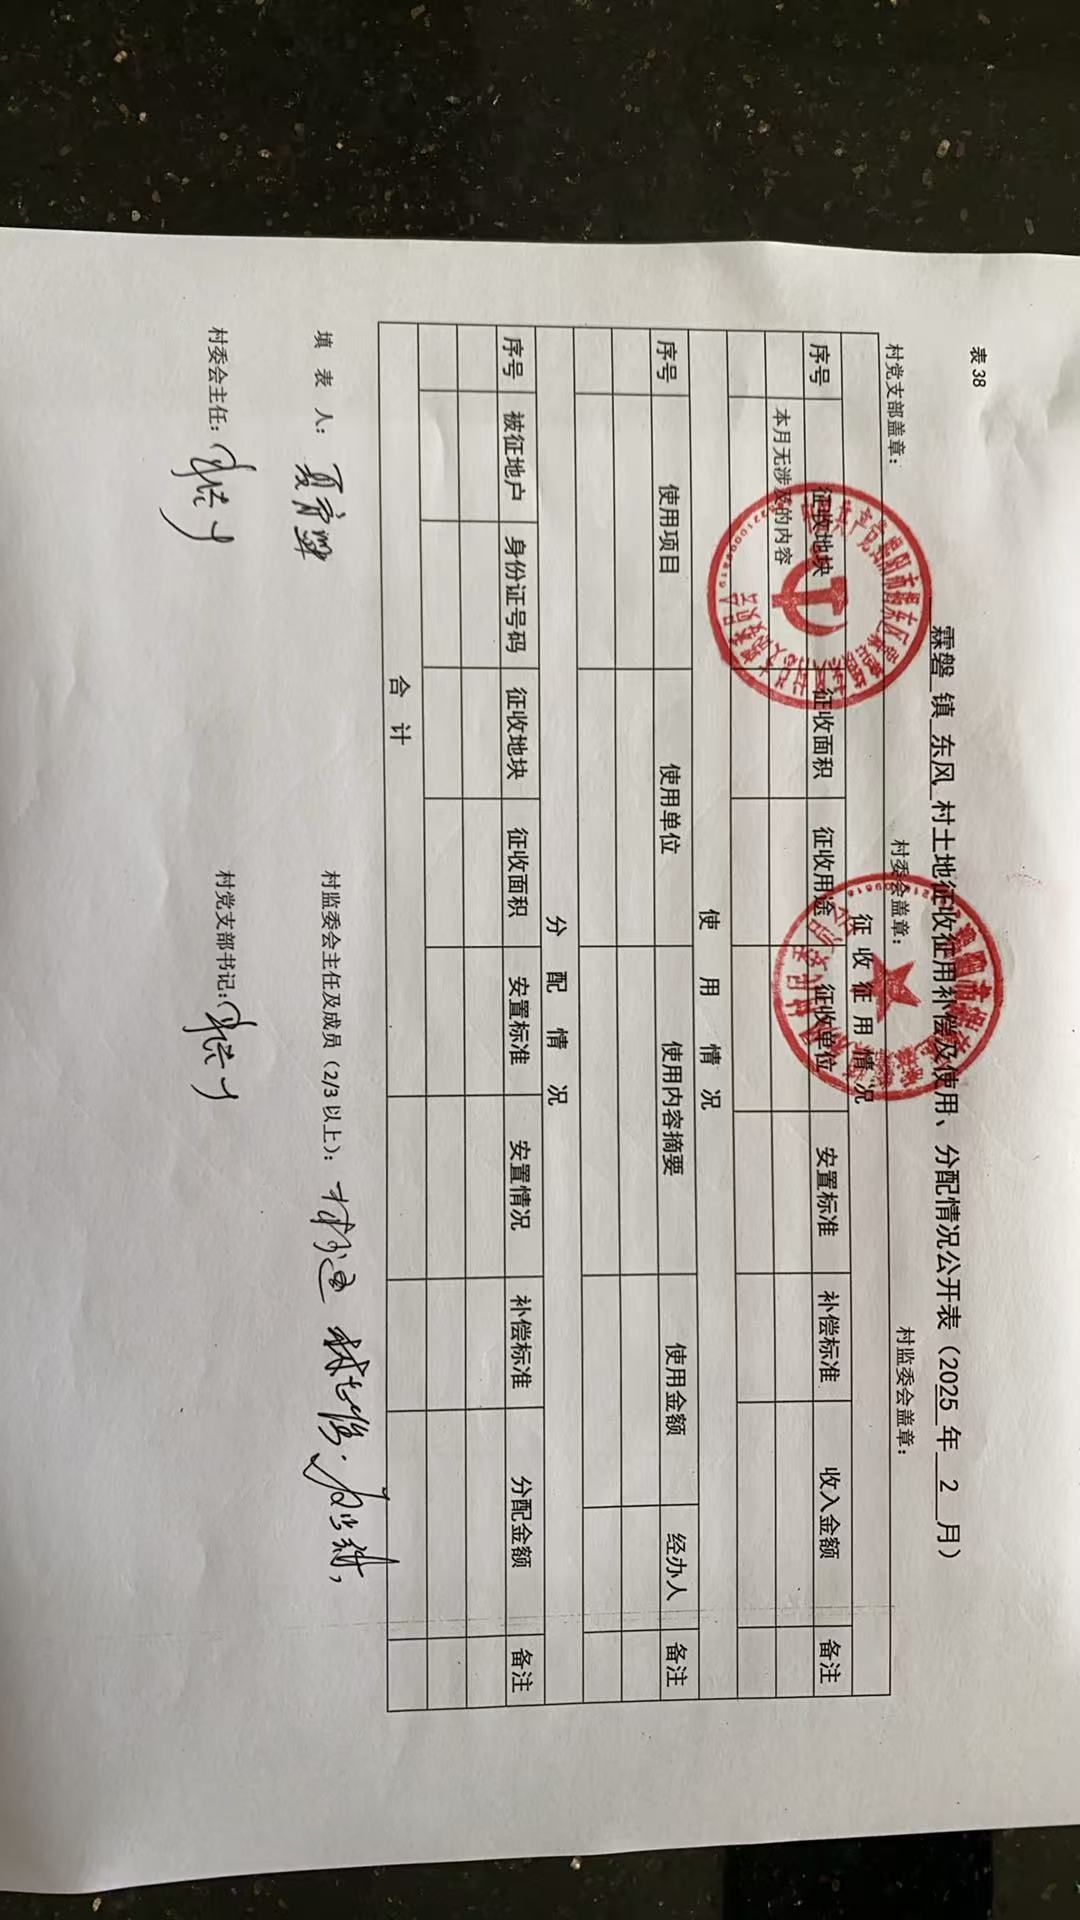 表 38
霖磐 镇 东风 村土地征收征用补偿及使用、分配情况公开表（2025 年 2 月）
村党支部盖章： 村委会盖章： 村监委会盖章：
征 收 征 用 情 况
序号 征收地块 征收面积 征收用途 征收单位 安置标准 补偿标准 收入金额 备注
本月无涉及的内容
使 用 情 况
序号 使用项目 使用单位 使用内容摘要 使用金额 经办人 备注
分 配 情 况
序号 被征地户 身份证号码 征收地块 征收面积 安置标准 安置情况 补偿标准 分配金额 备注
合 计
填 表 人： 村监委会主任及成员（2/3 以上）：
村委会主任： 村党支部书记：